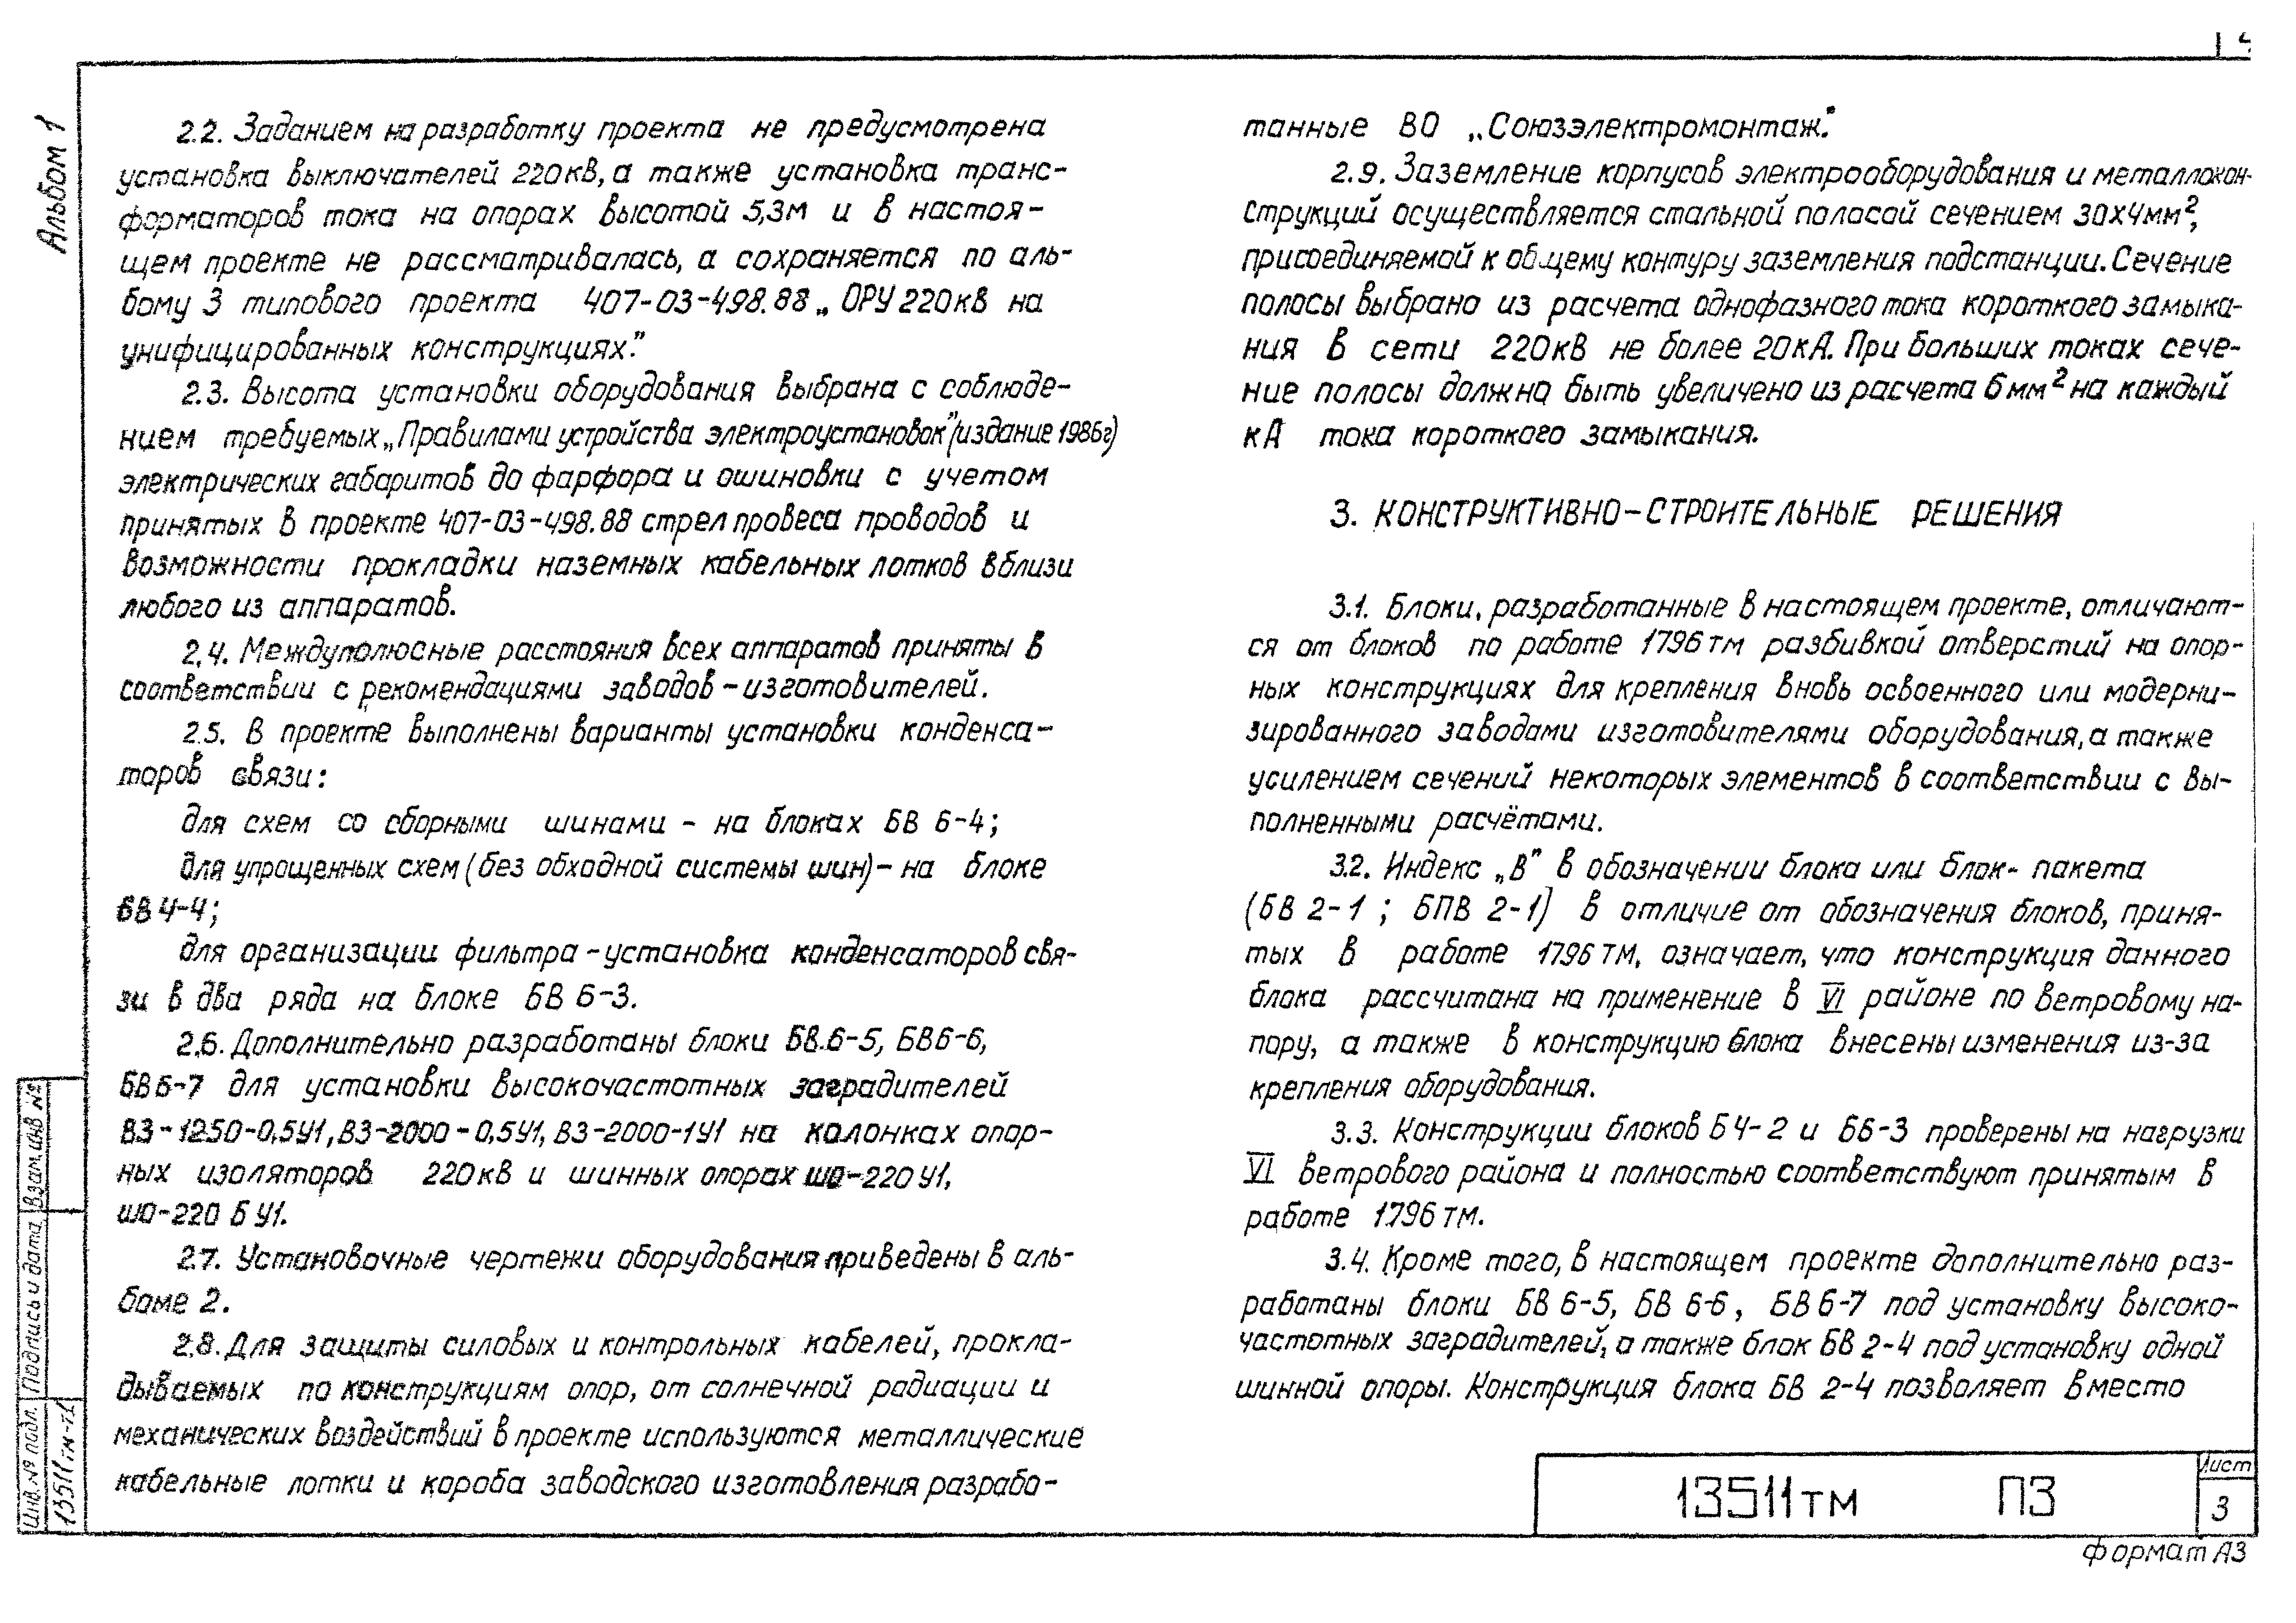 Альбом 1
2.2. Заданием на разработку проекта не предусмотрена
установка выключателей 220кВ, а также установка транс-
форматоров тока на опорах высотой 5,3м и в настоя-
щем проекте не рассматривалась, а сохраняется по аль-
бому 3 типового проекта 407-03-498.88 „ОРУ 220кВ на
унифицированных конструкциях."
2.3. Высота установки оборудования выбрана с соблюде-
нием требуемых „Правилами устройства электроустановок" (издание 1986г)
электрических габаритов до фарфора и ошиновки с учетом
принятых в проекте 407-03-498.88 стрел провеса проводов и
возможности прокладки наземных кабельных лотков вблизи
любого из аппаратов.
2.4. Междуполюсные расстояния всех аппаратов приняты в
соответствии с рекомендациями заводов-изготовителей.
2.5. В проекте выполнены варианты установки конденса-
торов связи:
для схем со сборными шинами - на блоках БВ 6-4;
для упрощенных схем (без обходной системы шин) - на блоке
БВ 4-4;
для организации фильтра - установка конденсаторов свя-
зи в два ряда на блоке БВ 6-3.
2.6. Дополнительно разработаны блоки БВ.6-5, БВ6-6,
БВ6-7 для установки высокочастотных заградителей
ВЗ-1250-0,5У1, ВЗ-2000-0,5У1, ВЗ-2000-1У1 на колонках опор-
ных изоляторов 220кВ и шинных опорах ШО-220У1,
ШО-220 Б У1.
2.7. Установочные чертежи оборудования приведены в аль-
боме 2.
2.8. Для защиты силовых и контрольных кабелей, прокла-
дываемых по конструкциям опор, от солнечной радиации и
механических воздействий в проекте используются металлические
кабельные лотки и короба заводского изготовления разрабо-
танные ВО „Союзэлектромонтаж".
2.9. Заземление корпусов электрооборудования и металлокон-
струкций осуществляется стальной полосой сечением 30х4мм²,
присоединяемой к общему контуру заземления подстанции. Сечение
полосы выбрано из расчета однофазного тока короткого замыка-
ния в сети 220кВ не более 20кА. При больших токах сече-
ние полосы должно быть увеличено из расчета 6мм² на каждый
кА тока короткого замыкания.
3. КОНСТРУКТИВНО-СТРОИТЕЛЬНЫЕ РЕШЕНИЯ
3.1. Блоки, разработанные в настоящем проекте, отличают-
ся от блоков по работе 1796тм разбивкой отверстий на опор-
ных конструкциях для крепления вновь освоенного или модерни-
зированного заводами изготовителями оборудования, а также
усилением сечений некоторых элементов в соответствии с вы-
полненными расчётами.
3.2. Индекс „В" в обозначении блока или блок-пакета
(БВ 2-1 ; БПВ 2-1) в отличие от обозначения блоков, приня-
тых в работе 1796тм, означает, что конструкция данного
блока рассчитана на применение в VI районе по ветровому на-
пору, а также в конструкцию блока внесены изменения из-за
крепления оборудования.
3.3. Конструкции блоков Б4-2 и Б6-3 проверены на нагрузки
VI ветрового района и полностью соответствуют принятым в
работе 1796тм.
3.4. Кроме того, в настоящем проекте дополнительно раз-
работаны блоки БВ 6-5, БВ 6-6, БВ6-7 под установку высоко-
частотных заградителей, а также блок БВ 2-4 под установку одной
шинной опоры. Конструкция блока БВ 2-4 позволяет вместо
Взам.инв №
Подпись и дата
Инв.№ подл.
13511тм-т1
13511тм ПЗ
Лист
3
формат А3